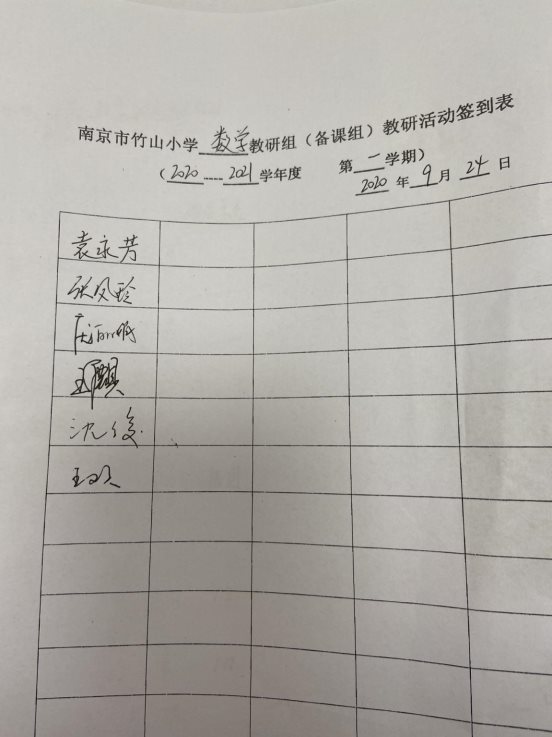 南京市竹山小学 数学 教研组（备课组）教研活动签到表
（2020----2021学年度 第一学期）
2020 年 9 月 24 日
袁永芳
张凤玲
沈俊